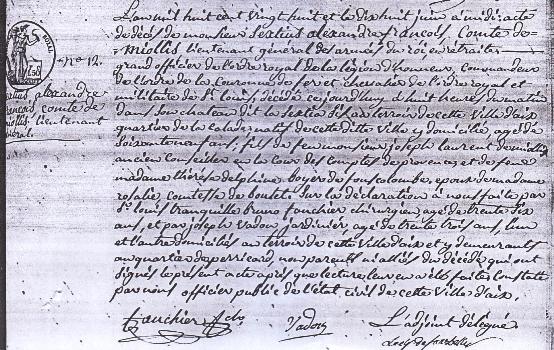 L'an mil huit cent vingt huit et le dix huit juin à midi; acte
de décès de monsieur Sextius alexandre françois Comte de
miollis lieutenant général des armées du roi en retraite
grand officier de l'ordre royal de la légion d'honneur, Commandeur
de l'ordre de la Couronne de fer et chevalier de l'ordre royal et
militaire de St louis, décédé cejourd'huy à huit heures du matin
dans son chateau dit la Sextia sis au terroir de cette Ville d'aix
quartier de la Calade, natif de cette ditte Ville y domicilié, agé de
Soixante neuf ans, fils de feu monsieur joseph laurent de miollis
ancien Conseiller en la Cour des Comptes de provence, et de feue
madame thérèse delphine boyer de fonscolombe, epoux de madame
rosalie, Comtesse de boulet. Sur la déclaration à nous faite par
Sr louis tranquille bruno fauchier chirurgien, agé de trente six
ans, et par joseph Vadon jardinier, agé de trente trois ans, l'un
et l'autre domiciliés au terroir de cette Ville d'aix et y demeurants
au quartier de puiricard, non parents ni alliés du décédé, qui ont
signés le présent acte après que lecture leur en a été faite. Constaté
par nous officier public de l'état civil de cette Ville d'aix.
fauchier Vadon L'adjoint délégué
no 12.
Sextius alexandre
françois comte de
miollis lieutenant
général.